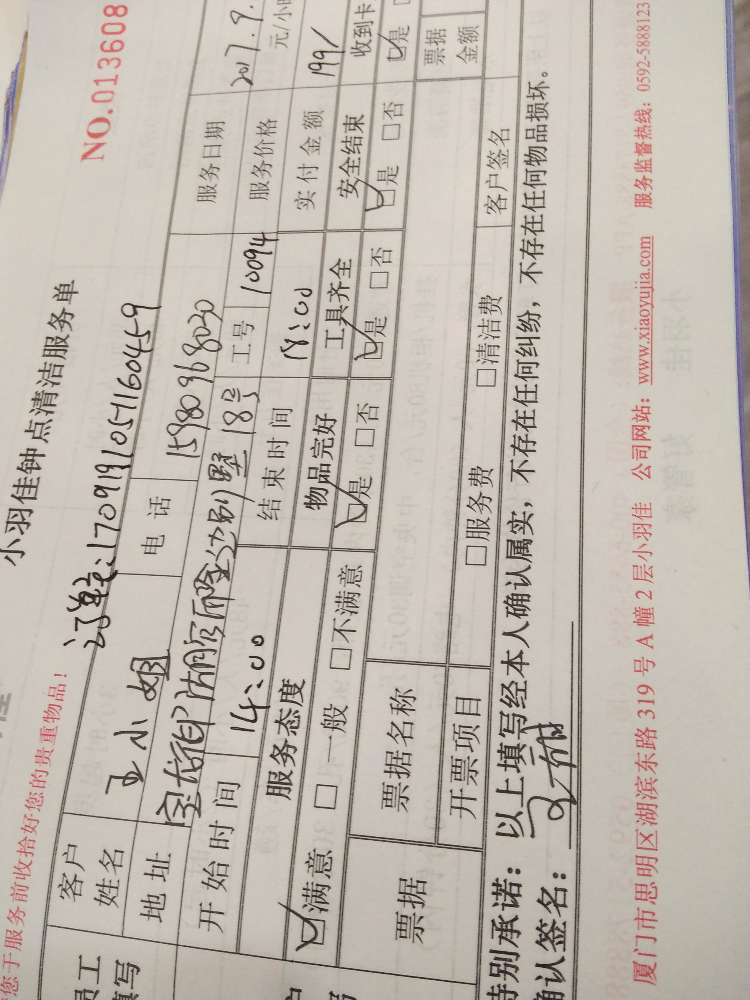 NO.013608
小羽佳钟点清洁服务单
您于服务前收拾好您的贵重物品!
订单:170919105116045９
客户姓名 王小姐 电话 15980968030 服务日期 2017.9.
地址 别墅18号 工号 10094 服务价格 元/小时
开始时间 14:00 结束时间 18:00 实付金额 199/
服务态度 物品完好 工具齐全 安全结束 收到卡
☑满意 □一般 □不满意 ☑是 □否 ☑是 □否 ☑是 □否 ☑是
票据 票据名称 票据金额
开票项目 □服务费 □清洁费 客户签名
特别承诺:以上填写经本人确认属实,不存在任何纠纷,不存在任何物品损坏。
确认签名:
厦门市思明区湖滨东路 319 号 A 幢 2 层小羽佳 公司网站:www.xiaoyujia.com 服务监督热线:0592-5888123